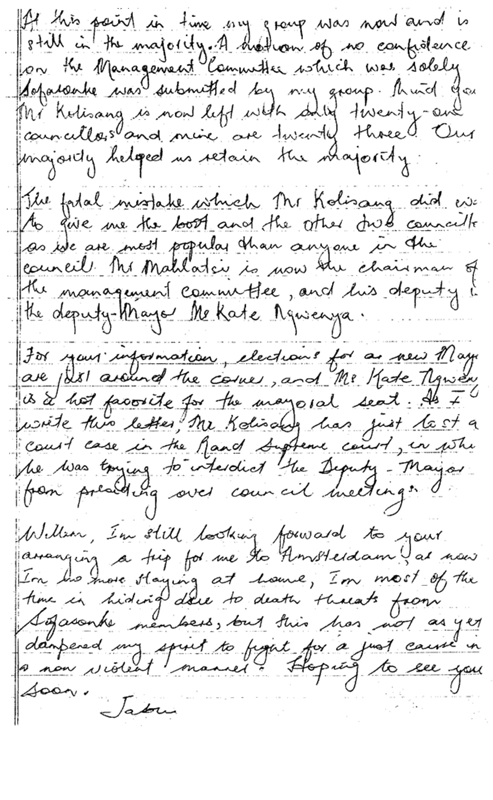 At this point in time my group was now and is
still in the majority. A motion of no confidence
on the Management Committee which was solely
Sofasonke was submitted by my group. Mind you
Mr Kolisang is now left with only twenty-one
councillors and mine are twenty three. Our
majority helped us retain the majority.
The fatal mistake which Mr Kolisang did
to give me the boot and the other two councill
as we are most popular than anyone in the
council. Mr Mahlatsi is now the chairman of
the management committee, and his deputy i
the deputy-Mayor Ms Kate Ngwenya.
For your information, elections for a new Mayo
are just around the corner, and Ms Kate Ngwen
is a hot favorite for the mayoral seat. As I
write this letter, Mr Kolisang has just lost a
court case in the Rand Supreme court, in whi
he was trying to interdict the Deputy-Mayor
from presiding over council meetings.
Willem, Im still looking forward to your
arranging a trip for me to Amsterdam, as now
Im no more staying at home, Im most of the
time in hiding due to death threats from
Sofasonke members, but this has not as yet
dampered my spirit to fight for a just cause in
a non violent manner. Hoping to see you
soon.
Jabu